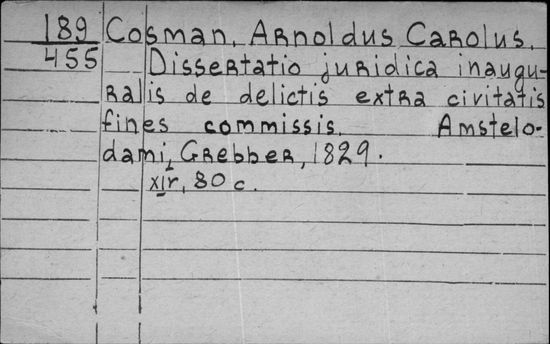 189 Cosman, Arnoldus Carolus.
455 Dissertatio juridica inaugu-
ralis de delictis extra civitatis
fines commissis. Amstelo-
dami, Grebber, 1829.
XIV, 80 c.